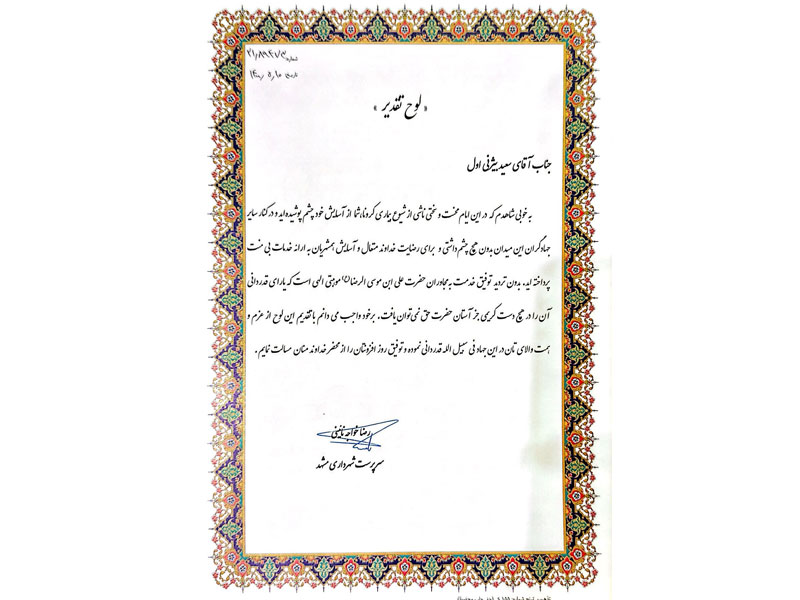 شماره ۲۱/۸۹۴۷/۳
تاریخ
« لوح تقدیر »
جناب آقای سعید بیژنی اول
به خوبی شاهدم که در این ایام محنت و سختی ناشی از شیوع بیماری کرونا، شما از آسایش خود چشم پوشیده اید و در کنار سایر
جهادگران این میدان بدون هیچ چشم داشتی و برای رضایت خداوند متعال و آسایش همشهریان به ارائه خدمات بی منت
پرداخته اید. بدون تردید توفیق خدمت به مجاوران حضرت علی ابن موسی الرضا(ع) موهبتی الهی است که یارای قدردانی
آن را در هیچ دست کریمی جز آستان حضرت حق نمی توان یافت. برخود واجب می دانم با تقدیم این لوح از عزم و
همت والای تان در این جهاد فی سبیل الله قدردانی نموده و توفیق روز افزونتان را از محضر خداوند منان مسالت نمایم.
رضا خواجه نائینی
سرپرست شهرداری مشهد